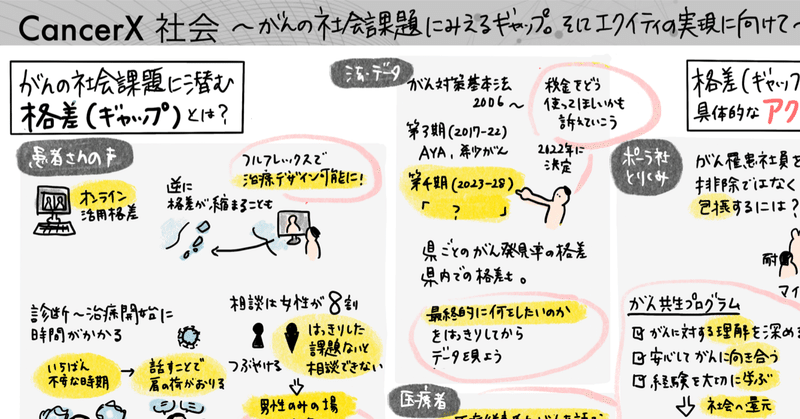 CancerX 社会 〜がんの社会課題にみえるギャップ。そしてエクイティの実現に向けて〜
がんの社会課題に潜む
格差(ギャップ)とは?
患者さんの声
オンライン
活用格差
逆に
格差が縮まることも
フルフレックスで
治療デザイン可能に!
診断〜治療開始に
時間がかかる
いちばん
不安な時期
話すことで
肩の荷がおりる
相談は女性が8割
つぶやける
はっきりした
課題ないと
相談できない
男性のみの場
法・データ
がん対策基本法
2006〜
第3期(2017-22)
AYA、希少がん
第4期(2023-28)
「 ? 」
税金をどう
使ってほしいかも
訴えていこう
2022年に
決定
県ごとのがん発見率の格差
県内での格差も。
最終的に何をしたいのか
をはっきりしてから
データを見よう
医療者
格差(ギャップ
具体的なアク
ポーラ社
とりくみ
がん罹患社員を
排除ではなく
包摂するには?
耐
マイ
がん共生プログラム
がんに対する理解を深め
安心してがんに向き合う
経験を大切に学ぶ
社会へ還元